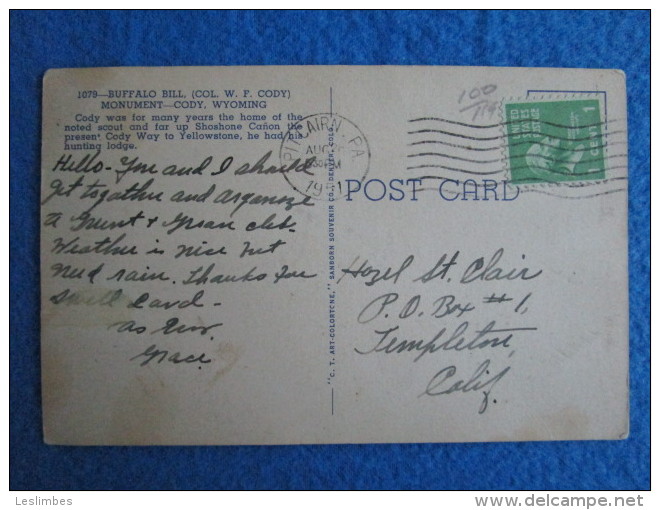 1079—BUFFALO BILL, (COL. W. F. CODY)
MONUMENT—CODY, WYOMING
Cody was for many years the home of the
noted scout and far up Shoshone Cañon the
present Cody Way to Yellowstone, he had his
hunting lodge.
Hello- You and I should
get togather and arganize
a Grunt & Groan club.
Weather is nice but
need rain. Thanks for
swell card-
as Ever
Grace
"C. T. ART-COLORTONE," SANBORN SOUVENIR CO., DENVER, COLO.
PITCAIRN, PA.
AUG
PM
POST CARD
100
UNITED STATES
1 CENT
Hazel St. Clair
P.O. Box #1,
Templeton,
Calif.
Leslimbes
delcampe.net